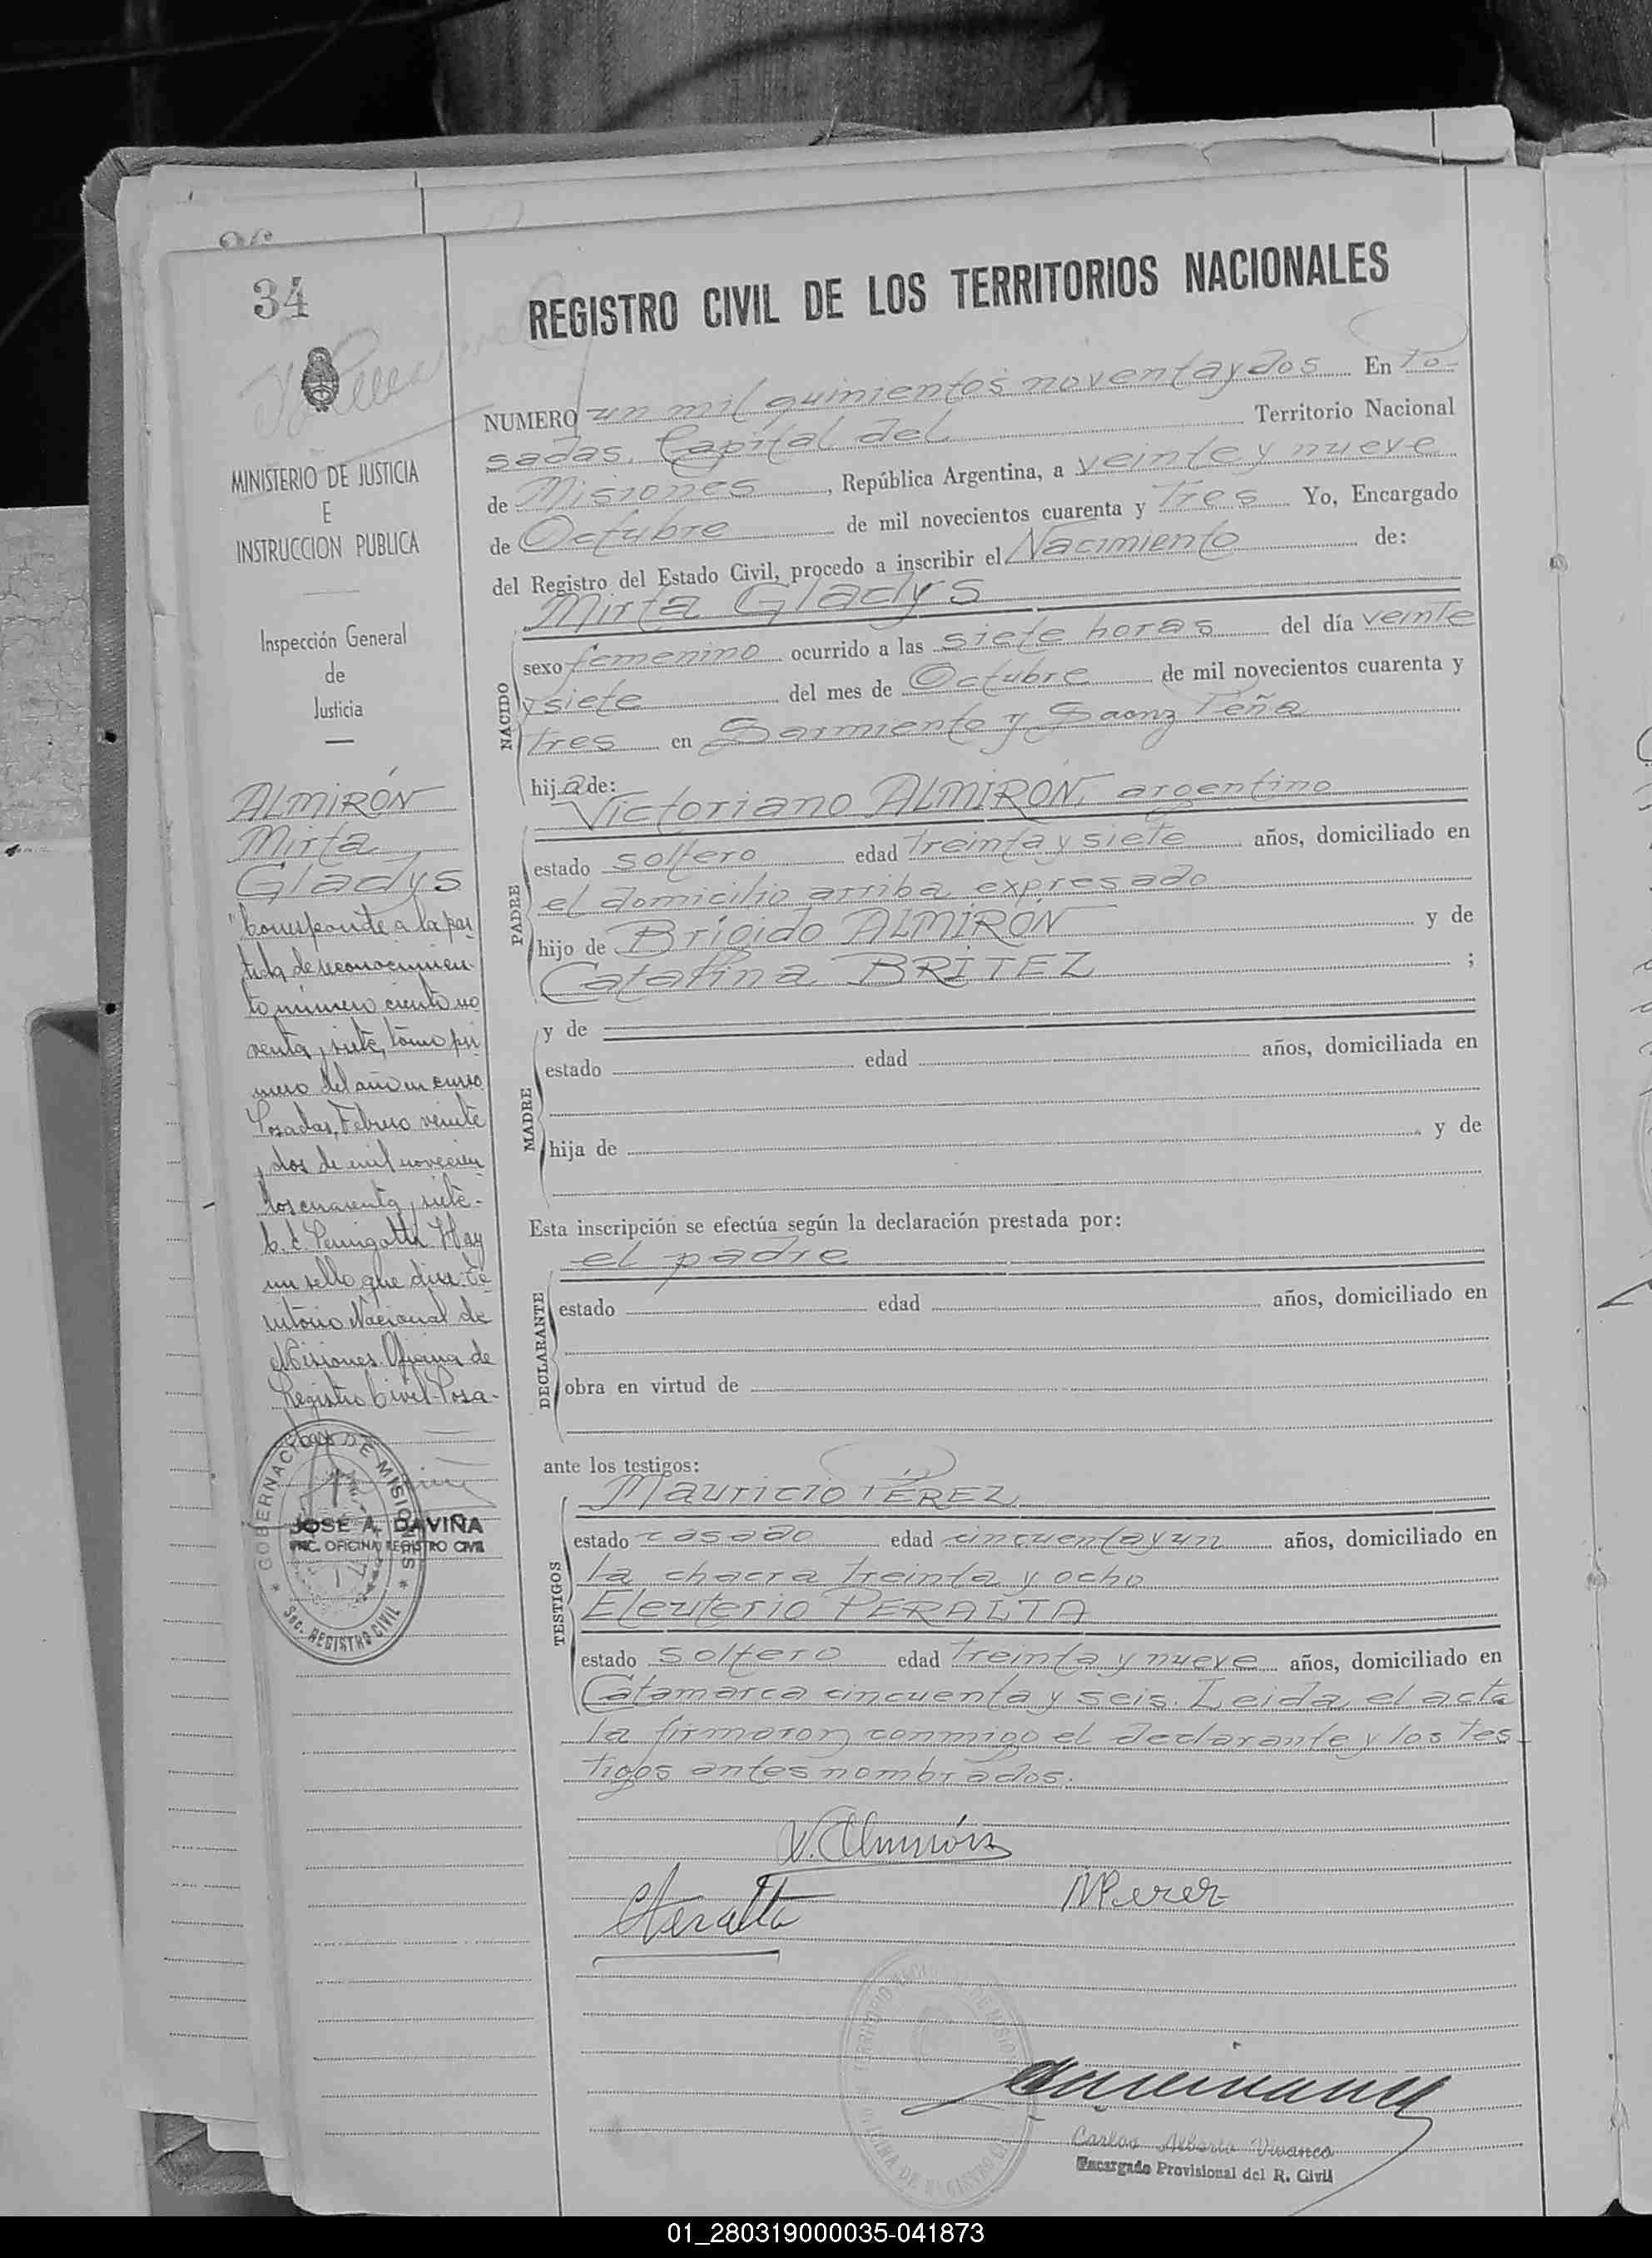 34
MINISTERIO DE JUSTICIA
E
INSTRUCCION PUBLICA
Inspección General
de
Justicia
ALMIRÓN
Mirta
Gladys
"Corresponde a la par
tida de reconocimien
to número ciento no
venta y siete, tomo pri
mero del año en curso
Posadas, Febrero veinte
y dos de mil novecien
tos cuarenta y siete.-
Hay
un sello que dice: Te
rritorio Nacional de
Misiones. Oficina de
Registro Civil-Posa-
das
GOBERNACION DE MISIONES
JOSÉ A. DAVIÑA
ENC. OFICINA REGISTRO CIVIL
Sec. REGISTRO CIVIL
REGISTRO CIVIL DE LOS TERRITORIOS NACIONALES
NUMERO un mil quinientos noventa y dos En Po-
sadas, Capital del Territorio Nacional
de Misiones, República Argentina, a veinte y nueve
de Octubre de mil novecientos cuarenta y tres Yo, Encargado
del Registro del Estado Civil, procedo a inscribir el Nacimiento de:
Mirta Gladys
NACIDO
sexo femenino ocurrido a las siete horas del día veinte
y siete del mes de Octubre de mil novecientos cuarenta y
tres en Sarmiento y Saenz Peña
hija de:
Victoriano ALMIRÓN, argentino
PADRE
estado soltero edad treinta y siete años, domiciliado en
el domicilio arriba expresado
hijo de Brígido ALMIRÓN y de
Catalina BRITEZ ;
MADRE
y de
estado edad años, domiciliada en
hija de y de
Esta inscripción se efectúa según la declaración prestada por:
el padre
DECLARANTE
estado edad años, domiciliado en
obra en virtud de
ante los testigos:
Mauricio PÉREZ
TESTIGOS
estado casado edad cincuenta y un años, domiciliado en
la chacra treinta y ocho
Eleuterio PERALTA
estado soltero edad treinta y nueve años, domiciliado en
Catamarca cincuenta y seis. Leida el acta
la firmaron conmigo el declarante y los tes
tigos antes nombrados.
V. Almirón
EPeralta
MPerez
Carlos Alberto Vivanco
Encargado Provisional del R. Civil
01_280319000035-041873